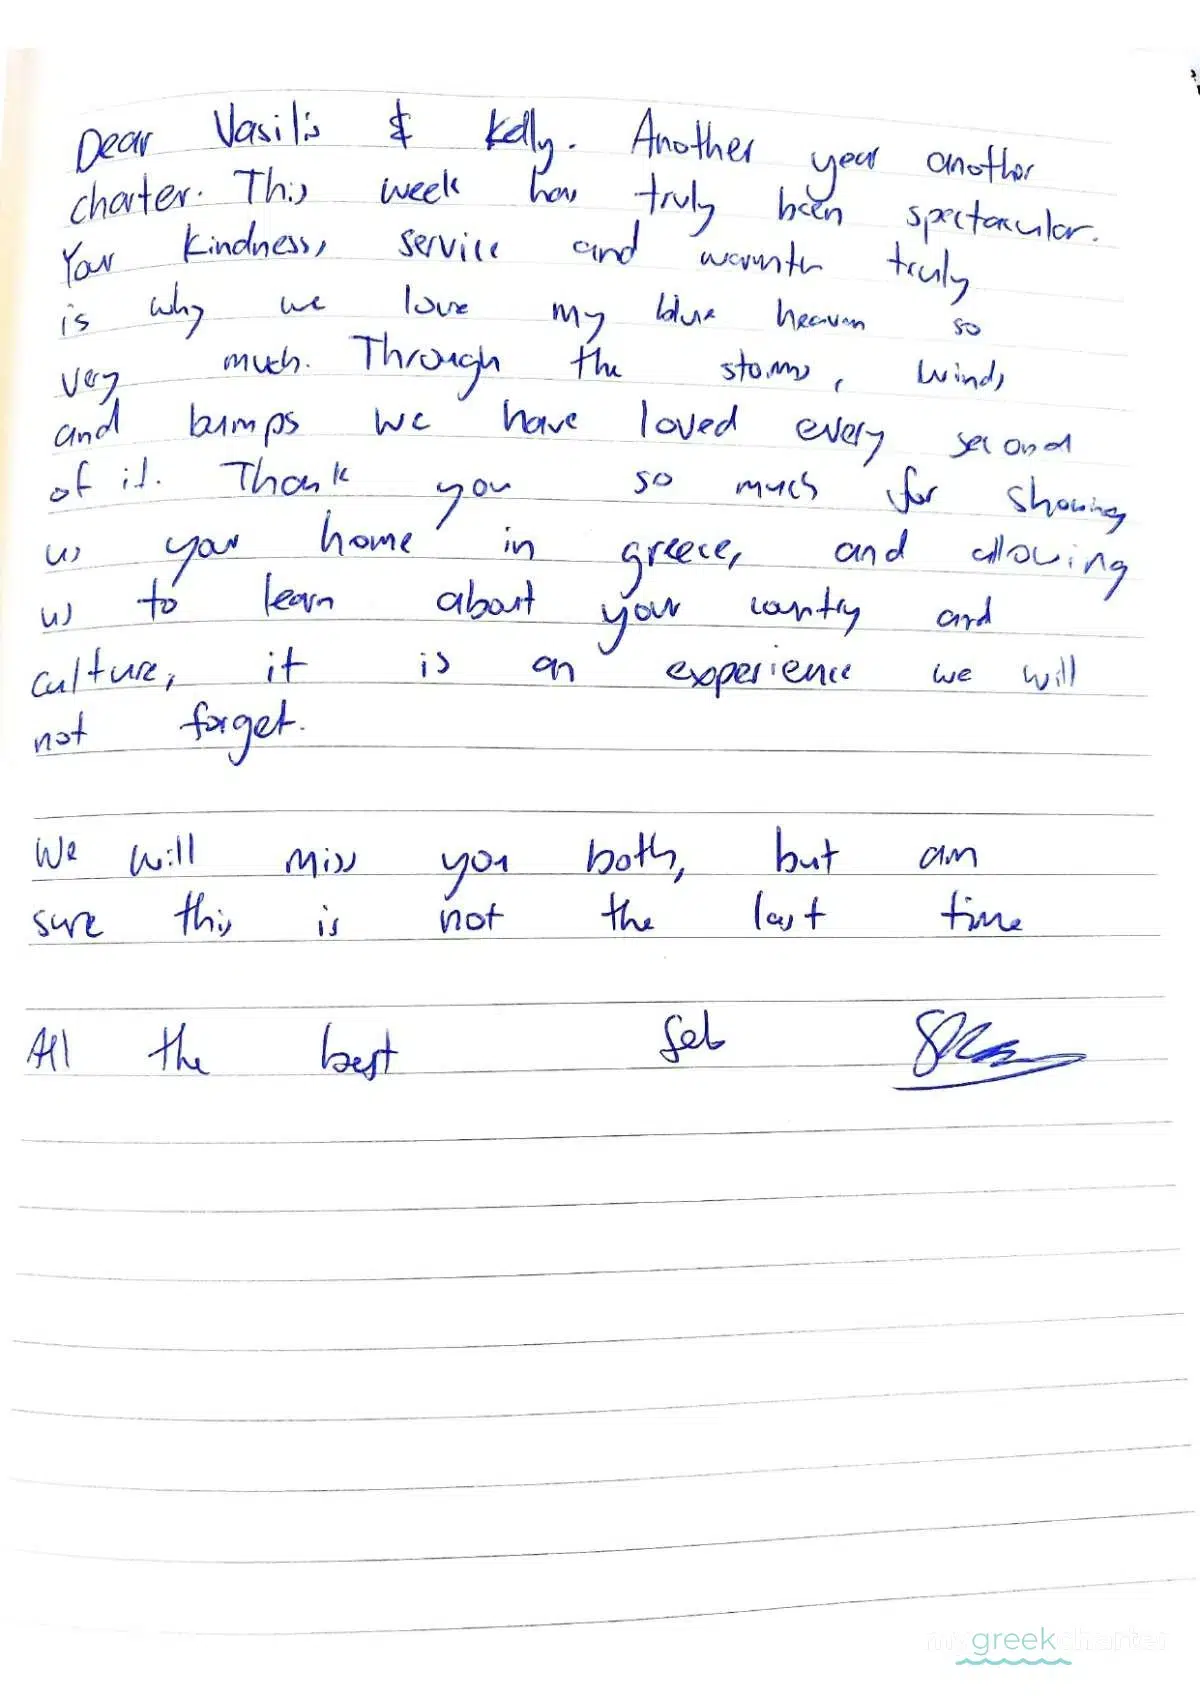 Dear Vasilis & Kelly. Another year another
charter. This week has truly been spectacular.
Your kindness, service and warmth truly
is why we love my blue heaven so
very much. Through the storms, winds
and bumps we have loved every second
of it. Thank you so much for showing
us your home in greece, and allowing
us to learn about your country and
culture, it is an experience we will
not forget.
We will miss you both, but am
sure this is not the last time
All the best Seb
mygreekcharter